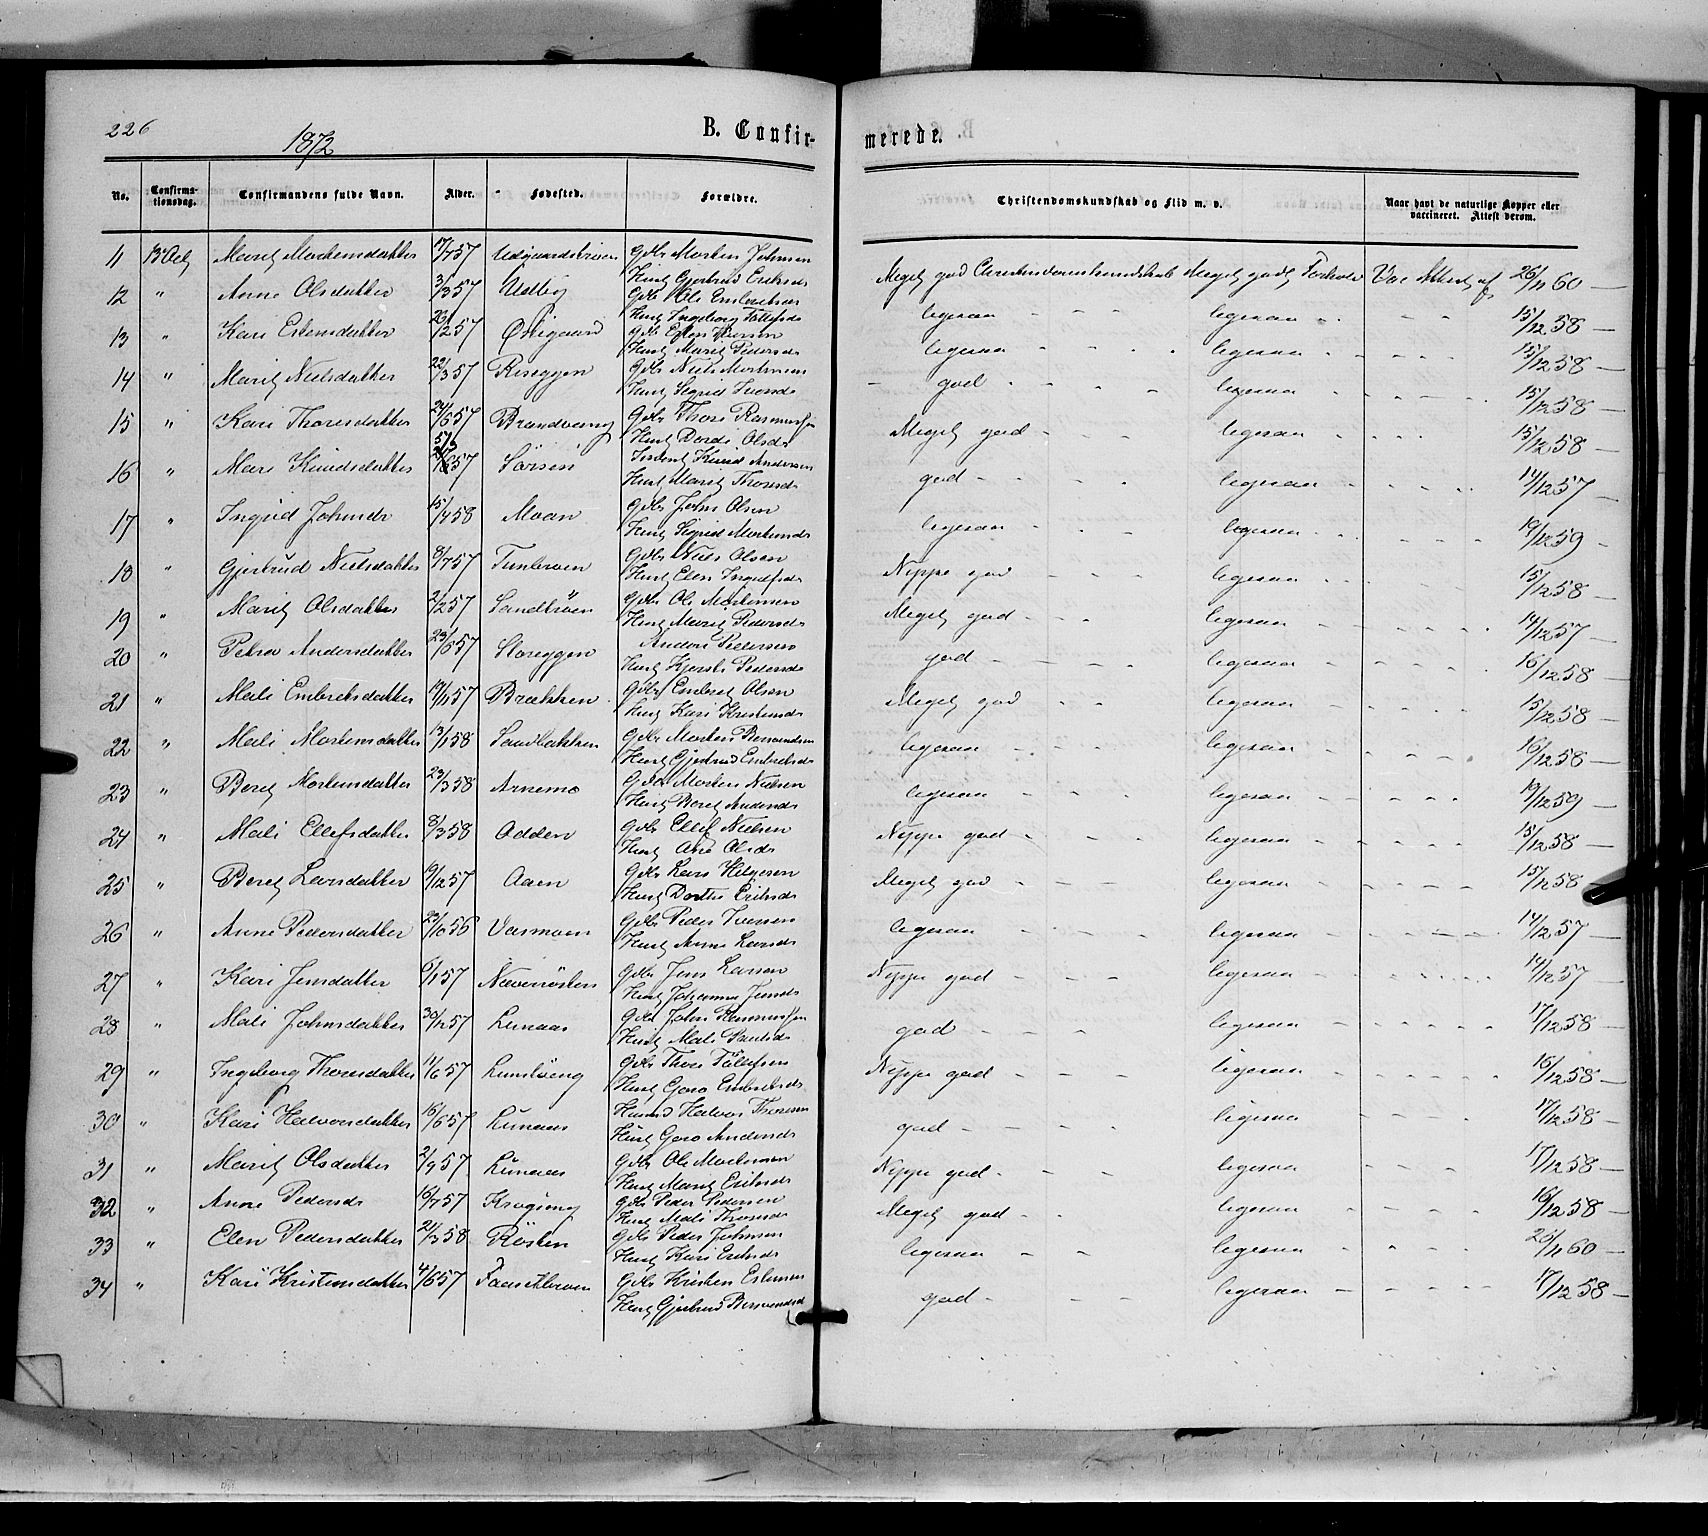 226
1872
B. Confir-
merede.
No. Confirmationsdag. Confirmandens fulde Navn. Alder. Fødested. Forældre. Christendomskundskab og Flid m. v. Naar havt de naturlige Kopper eller vaccineret. Attest derom.
11 13 Oct Marit Mortensdatter 17/7 57 Gdbr Morten Johnsen Meget god Christendomskundskab Meget godt Forhold Vac Attest af 26/11 60
Hust Gjertrud Eriksd
12 " Anne Olsdatter 3/3 57 Udby Gdbr Ole Embretsen ligesaa - - - ligesaa - - - 15/12 58
Hust Ingeborg Tollefsd
13 " Kari Estensdatter 23/2 57 Østgaard Gdbr Esten Iversen ligesaa - - - ligesaa - - - 15/12 58
Hust Marit Pedersd
14 " Marit Nielsdatter 22/3 57 Riseggen Gdbr Niels Mortensen god - - - ligesaa - - - 15/12 58
Hust Sigrid Iversd
15 " Kari Thoresdatter 24/6 57 Brandvang Gdbr Thore Rasmussen Meget god - - - ligesaa - - - 15/12 58
Hust Dordi Olsd
16 " Mari Knudsdatter 57 Sørsen Knud Andersen god - - - ligesaa - - - 14/12 57
Hust Marit Thoresd
17 " Ingrid Johnsdr 15/4 58 Moan Gdbr John Olsen ligesaa - - - ligesaa - - - 19/12 59
Hust Sigrid Mortensd
18 " Gjertrud Nielsdatter 8/7 57 Gdbr Niels Olsen Neppe god - - - ligesaa - - - 15/12 58
Hust Elen Ingulfsd
19 " Marit Olsdatter 2/2 57 Sandbrøen Gdbr Ole Mortensen Meget god - - - ligesaa - - - 14/12 57
Hust Marit Pedersd
20 " Petra Andersdatter 23/6 57 Storeggen Anders Pedersen god - - - ligesaa - - - 16/12 58
Hust Kjersti Pedersd
21 " Mali Embretsdatter 19/11 57 Brækken Gdbr Embret Olsen Meget god - - - ligesaa - - - 15/12 58
Hust Kari Kristensd
22 " Mali Mortensdatter 13/1 58 Sandbakken Gdbr Morten Bersvendsen ligesaa - - - ligesaa - - - 16/12 58
Hust Gjertrud Embretsd
23 " Beret Mortensdatter 23/3 58 Arnemo Gdbr Morten Nielsen ligesaa - - - ligesaa - - - 19/12 59
Hust Beret Andersd
24 " Mali Ellefsdatter 8/3 58 Odden Gdbr Ellef Nielsen Neppe god - - - ligesaa - - - 15/12 58
Hust Ane Olsdr
25 " Beret Larsdatter 19/12 57 Aaen Gdbr Lars Helgesen Meget god - - - ligesaa - - - 15/12 58
Hust Dorthe Eriksd
26 " Anne Pedersdatter 23/10 56 Vasmoen Gdbr Peder Iversen ligesaa - - - ligesaa - - - 14/12 57
Hust Anne Larsd
27 " Kari Jensdatter 6/1 57 Gdbr Jens Larsen Neppe god - - - ligesaa - - - 14/12 57
Hust Johanna Jensd
28 " Mali Johnsdatter 30/12 57 Lunaas Gdbr John Rasmussen god - - - ligesaa - - - 17/12 58
Hust Mali
29 " Ingeborg Thoresdatter 11/6 57 Lunsløeng Gdbr Thore Tollefsen Neppe god - - - ligesaa - - - 16/12 58
Hust Goro Embretsd
30 " Kari Halvorsdatter 16/6 57 Lunaas Husmd Halvor Thoresen god - - - ligesaa - - - 17/12 58
Hust Goro Andersd
31 " Marit Olsdatter 2/9 57 Lunaas Gdbr Ole Mortensen Neppe god - - - ligesaa - - - 17/12 58
Hust Marit Eriksd
32 " Anne Pedersd 16/7 57 Krogeng Gdbr Peder Pedersen Meget god - - - ligesaa - - - 16/12 58
Hust Mali Thoresd
33 " Elen Pedersdatter 21/3 58 Røsten Gdbr Peder Johnsen ligesaa - - - ligesaa - - - 26/11 60
Hust Kari Eriksd
34 " Kari Kristensdatter 4/6 57 Gdbr Kristen Estensen god - - - ligesaa - - - 17/12 58
Hust Gjertrud Bersvendsd